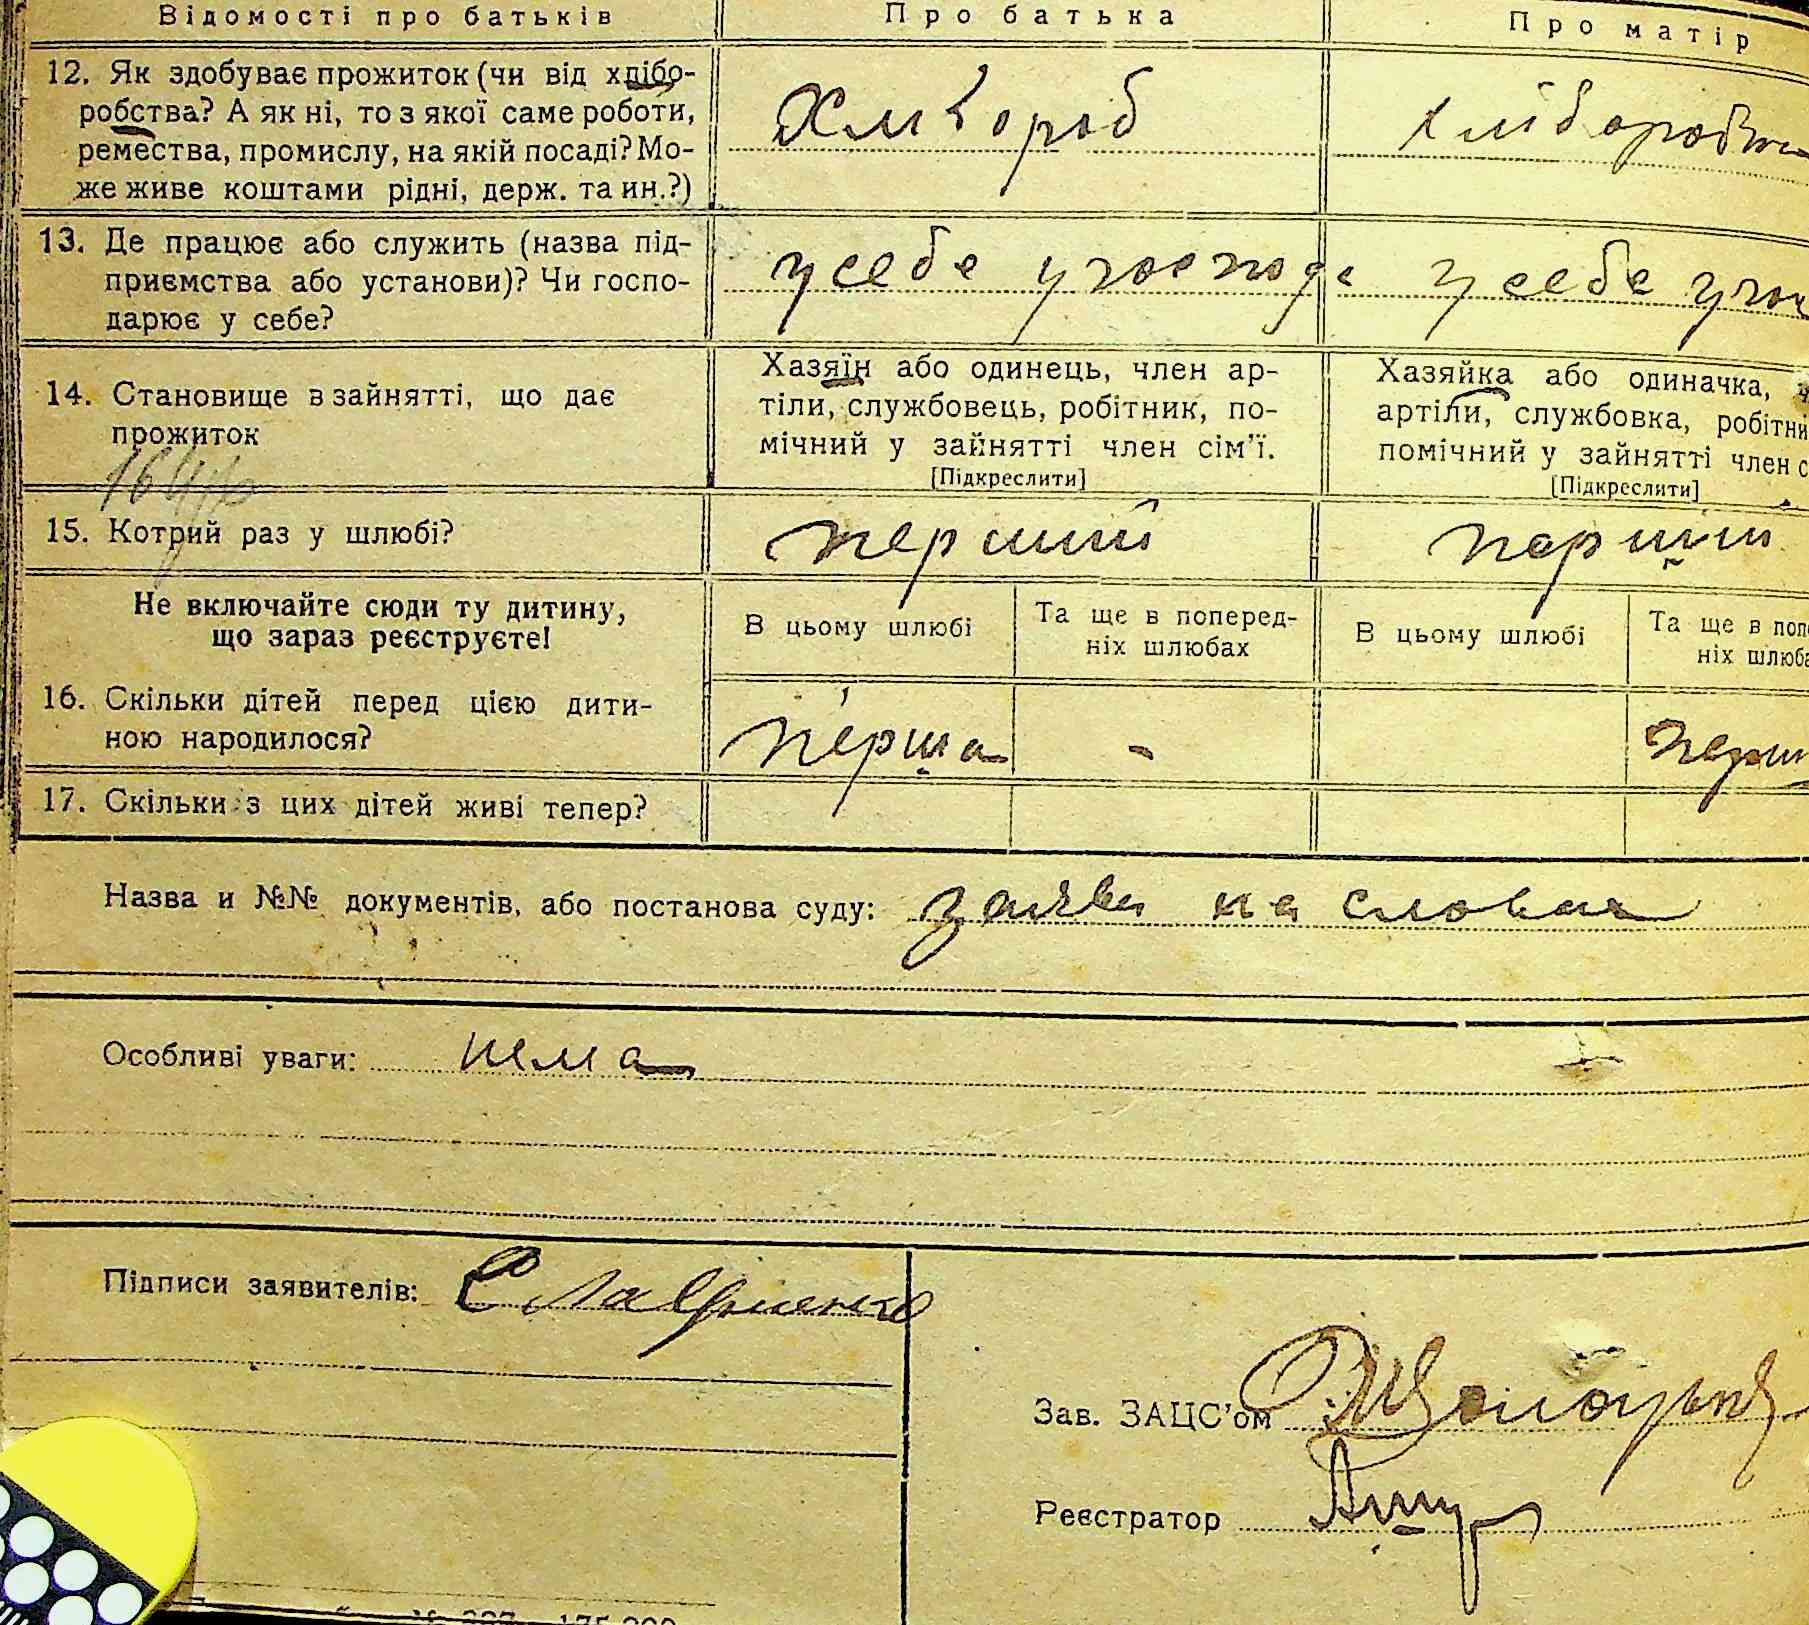 Відомості про батьків Про батька Про матір
12. Як здобуває прожиток (чи від хлібо-
робства? А як ні, то з якої саме роботи,
ремества, промислу, на якій посаді? Мо-
же живе коштами рідні, держ. та ин.?)
Хлібороб
13. Де працює або служить (назва під-
приємства або установи)? Чи госпо-
дарює у себе?
у себе у господ у себе у гос
14. Становище в зайнятті, що дає
прожиток
Хазяїн або одинець, член ар-
тіли, службовець, робітник, по-
мічний у зайнятті член сім'ї.
[Підкреслити]
Хазяйка або одиначка,
артіли, службовка, робітни
помічний у зайнятті член с
[Підкреслити]
15. Котрий раз у шлюбі? перший перший
Не включайте сюди ту дитину,
що зараз реєструєте!
В цьому шлюбі
Та ще в поперед-
ніх шлюбах
В цьому шлюбі
Та ще в попе
ніх шлюба
16. Скільки дітей перед цією дити-
ною народилося?
перша - перш
17. Скільки з цих дітей живі тепер?
Назва и №№ документів, або постанова суду: заява на словах
Особливі уваги: нема
Підписи заявителів:
Зав. ЗАЦС'ом
Реєстратор